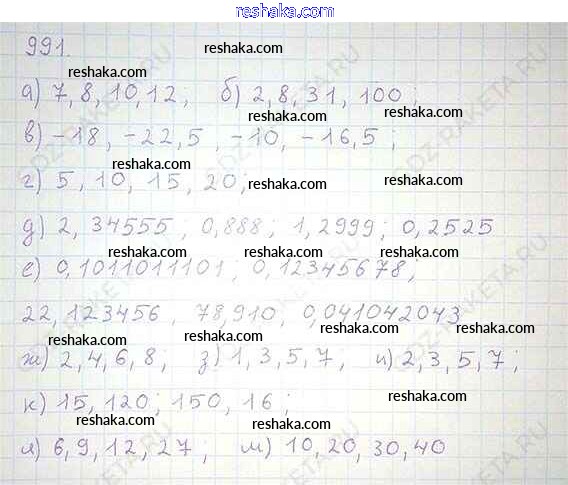 www.reshaka.com
991.
reshaka.com
reshaka.com
reshaka.com
а) 7, 8, 10, 12; б) 2, 8, 31, 100;
reshaka.com
reshaka.com
в) -18, -22,5, -10, -16,5;
reshaka.com
reshaka.com
г) 5, 10, 15, 20,
д) 2,34555; 0,888; 1,2999; 0,2525
reshaka.com
reshaka.com
reshaka.com
е) 0,1011011101; 0,12345678,
22,123456, 78,910, 0,041042043
reshaka.com
reshaka.com
reshaka.com
ж) 2, 4, 6, 8; з) 1, 3, 5, 7; и) 2, 3, 5, 7;
reshaka.com
reshaka.com
к) 15, 120; 150, 16;
reshaka.com
reshaka.com
л) 6, 9, 12, 27; м) 10, 20, 30, 40
reshaka.com
reshaka.com
www.reshaka.com